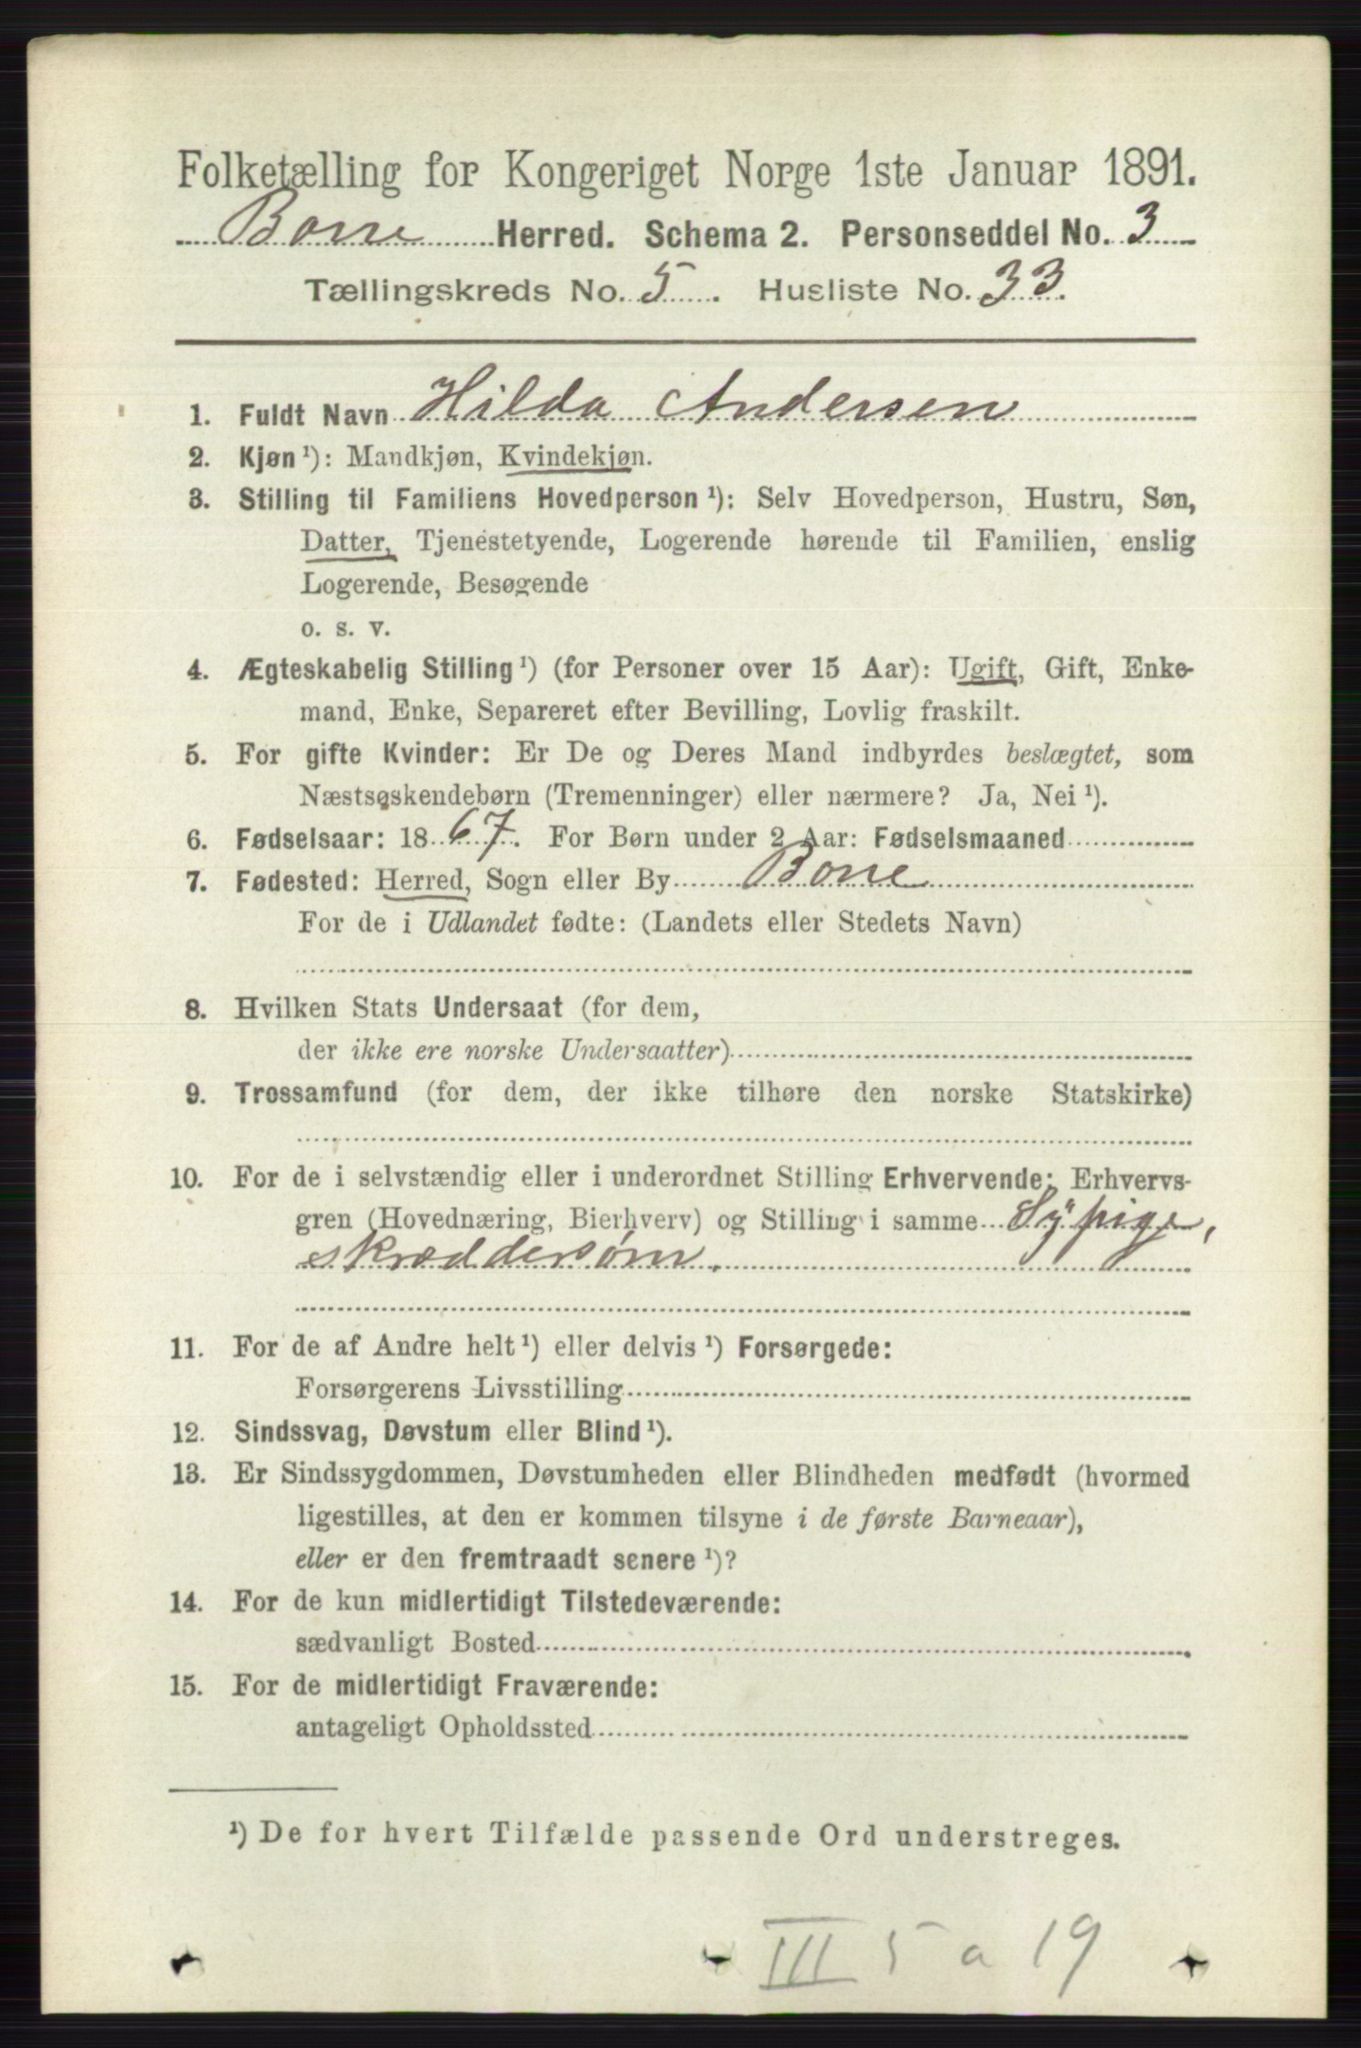 Folketælling for Kongeriget Norge 1ste Januar 1891.
Borre Herred. Schema 2. Personseddel No. 3
Tællingskreds No. 5. Husliste No. 33.
1. Fuldt Navn Hilda Andersen
2. Kjøn ¹): Mandkjøn, Kvindekjøn.
3. Stilling til Familiens Hovedperson ¹): Selv Hovedperson, Hustru, Søn,
Datter, Tjenestetyende, Logerende hørende til Familien, enslig
Logerende, Besøgende
o. s. v.
4. Ægteskabelig Stilling ¹) (for Personer over 15 Aar): Ugift, Gift, Enke-
mand, Enke, Separeret efter Bevilling, Lovlig fraskilt.
5. For gifte Kvinder: Er De og Deres Mand indbyrdes beslægtet, som
Næstsøskendebørn (Tremenninger) eller nærmere? Ja, Nei ¹).
6. Fødselsaar: 1867. For Børn under 2 Aar: Fødselsmaaned
7. Fødested: Herred, Sogn eller By Borre
For de i Udlandet fødte: (Landets eller Stedets Navn)
8. Hvilken Stats Undersaat (for dem,
der ikke ere norske Undersaatter)
9. Trossamfund (for dem, der ikke tilhøre den norske Statskirke)
10. For de i selvstændig eller i underordnet Stilling Erhvervende: Erhvervs-
gren (Hovednæring, Bierhverv) og Stilling i samme Sÿpige,
skræddersøm.
11. For de af Andre helt ¹) eller delvis ¹) Forsørgede:
Forsørgerens Livsstilling
12. Sindssvag, Døvstum eller Blind ¹).
13. Er Sindssygdommen, Døvstumheden eller Blindheden medfødt (hvormed
ligestilles, at den er kommen tilsyne i de første Barneaar),
eller er den fremtraadt senere ¹)?
14. For de kun midlertidigt Tilstedeværende:
sædvanligt Bosted
15. For de midlertidigt Fraværende:
antageligt Opholdssted
¹) De for hvert Tilfælde passende Ord understreges.
III 5 a 19